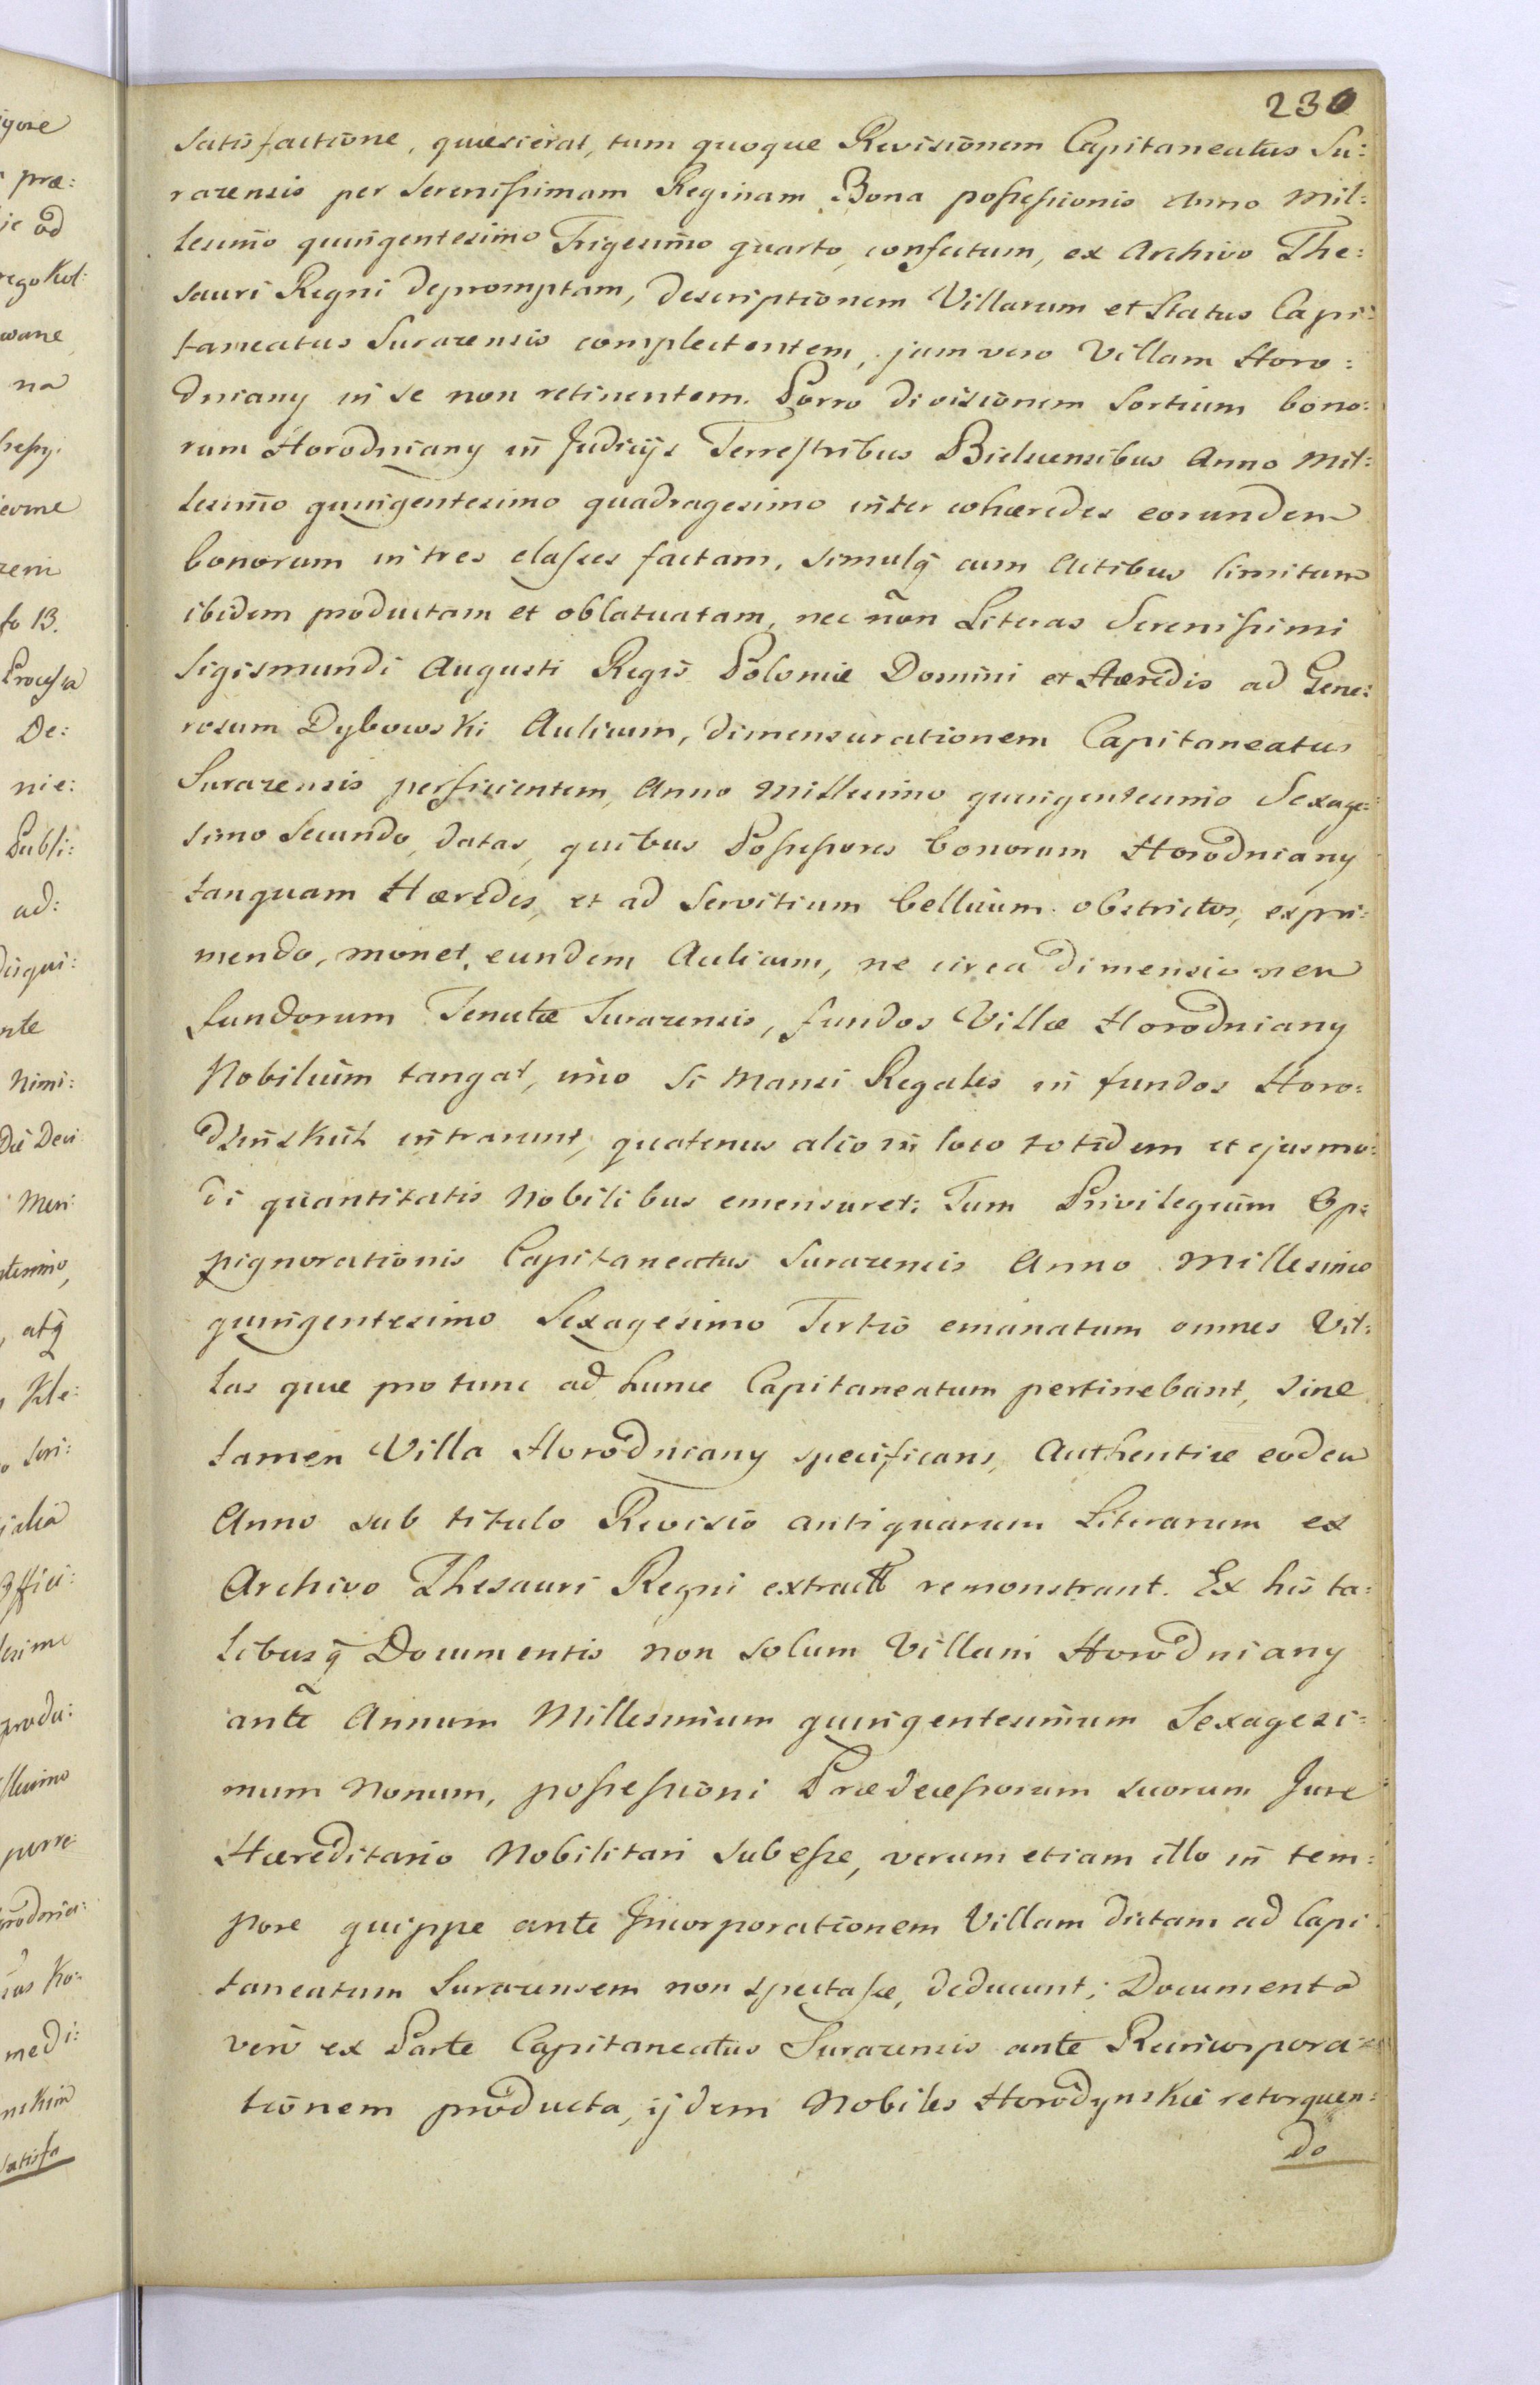 230
satisfactione, quæsierat, tum quoque Revisionem Capitaneatus Su:
razensis per Serenissimam Reginam Bona possessionis Anno Mil:
lesimo quingentesimo Trigesimo quarto, confectam, ex Archivo The:
sauri Regni depromptam, descriptionem Villarum et Status Capi:
taneatus Surazensis complectentem, jam vero Villam Horo:
dniany in se non retinentem. Porro divisionem Sortium bono:
rum Horodniany in Judicijs Terrestribus Bielscensibus Anno Mil:
lesimo quingentesimo quadragesimo inter cohæredes eorundem
bonorum in tres classes factam, simulq̃ cum Actibus limitum
ibidem productam et oblatuatam, nec non Literas Serenissimi
Sigismundi Augusti Regis Poloniæ Domini et Hæredis ad Gene:
rosum Dybowski Aulicum, dimensurationem Capitaneatus
Surazensis perficientem, Anno Millesimo quingentesimo Sexage:
simo Secundo, datas, quibus Possessores bonorum Horodniany
tanquam Hæredes, et ad Servitium bellicum obstrictos, expri:
mendo, monet, eundem Aulicum, ne circa dimensionem
fundorum Tenutæ Surazensis, fundos Villæ Horodniany
Nobilium tangat, imo si Mansi Regales in fundos Horo:
dzinskich intrarunt, quatenus alio in loco totidem et ejusmo:
di quantitatis Nobilibus emensuret; Tum Privilegium Op:
pignorationis Capitaneatus Surazensis Anno Millesimo
quingentesimo Sexagesimo Tertio emanatum omnes Vil:
las quæ pro tunc ad hunc Capitaneatum pertinebant, sine
tamen Villa Horodniany specificans, Authentice eodem
Anno sub titulo Revisio antiquarum Literarum ex
Archivo Thesauri Regni remonstrant. Ex his ta:
libusq̃ Documentis non solum Villam Horodniany
ante Annum Millesimum quingentesimum Sexagesi:
mum Nonum, possessioni Prædecessorum suorum Jure
Hæreditario Nobilitari subesse, verum etiam illo in tem:
pore quippe ante Incorporationem Villam dictam ad Capi:
taneatum Surazensem non spectasse, deducunt; Documenta
vero ex Parte Capitaneatus Surazensis ante Reincorpora:
tionem producta, ijdem Nobiles Horodynskie retorquen:
do